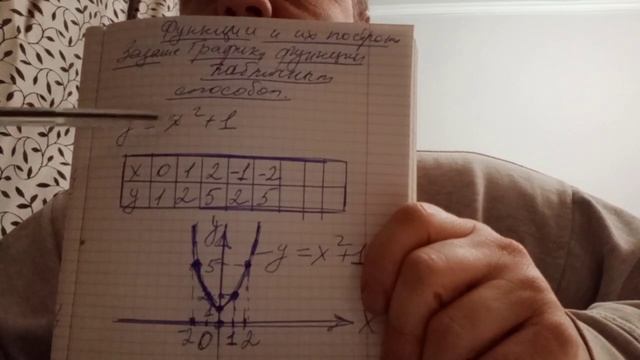 Функции и их построе
Задание График функции
табличным
способом.
y = x²+1
x 0 1 2 -1 -2
y 1 2 5 2 5
y
5
y = x²+1
2
1
x
2 0 1 2